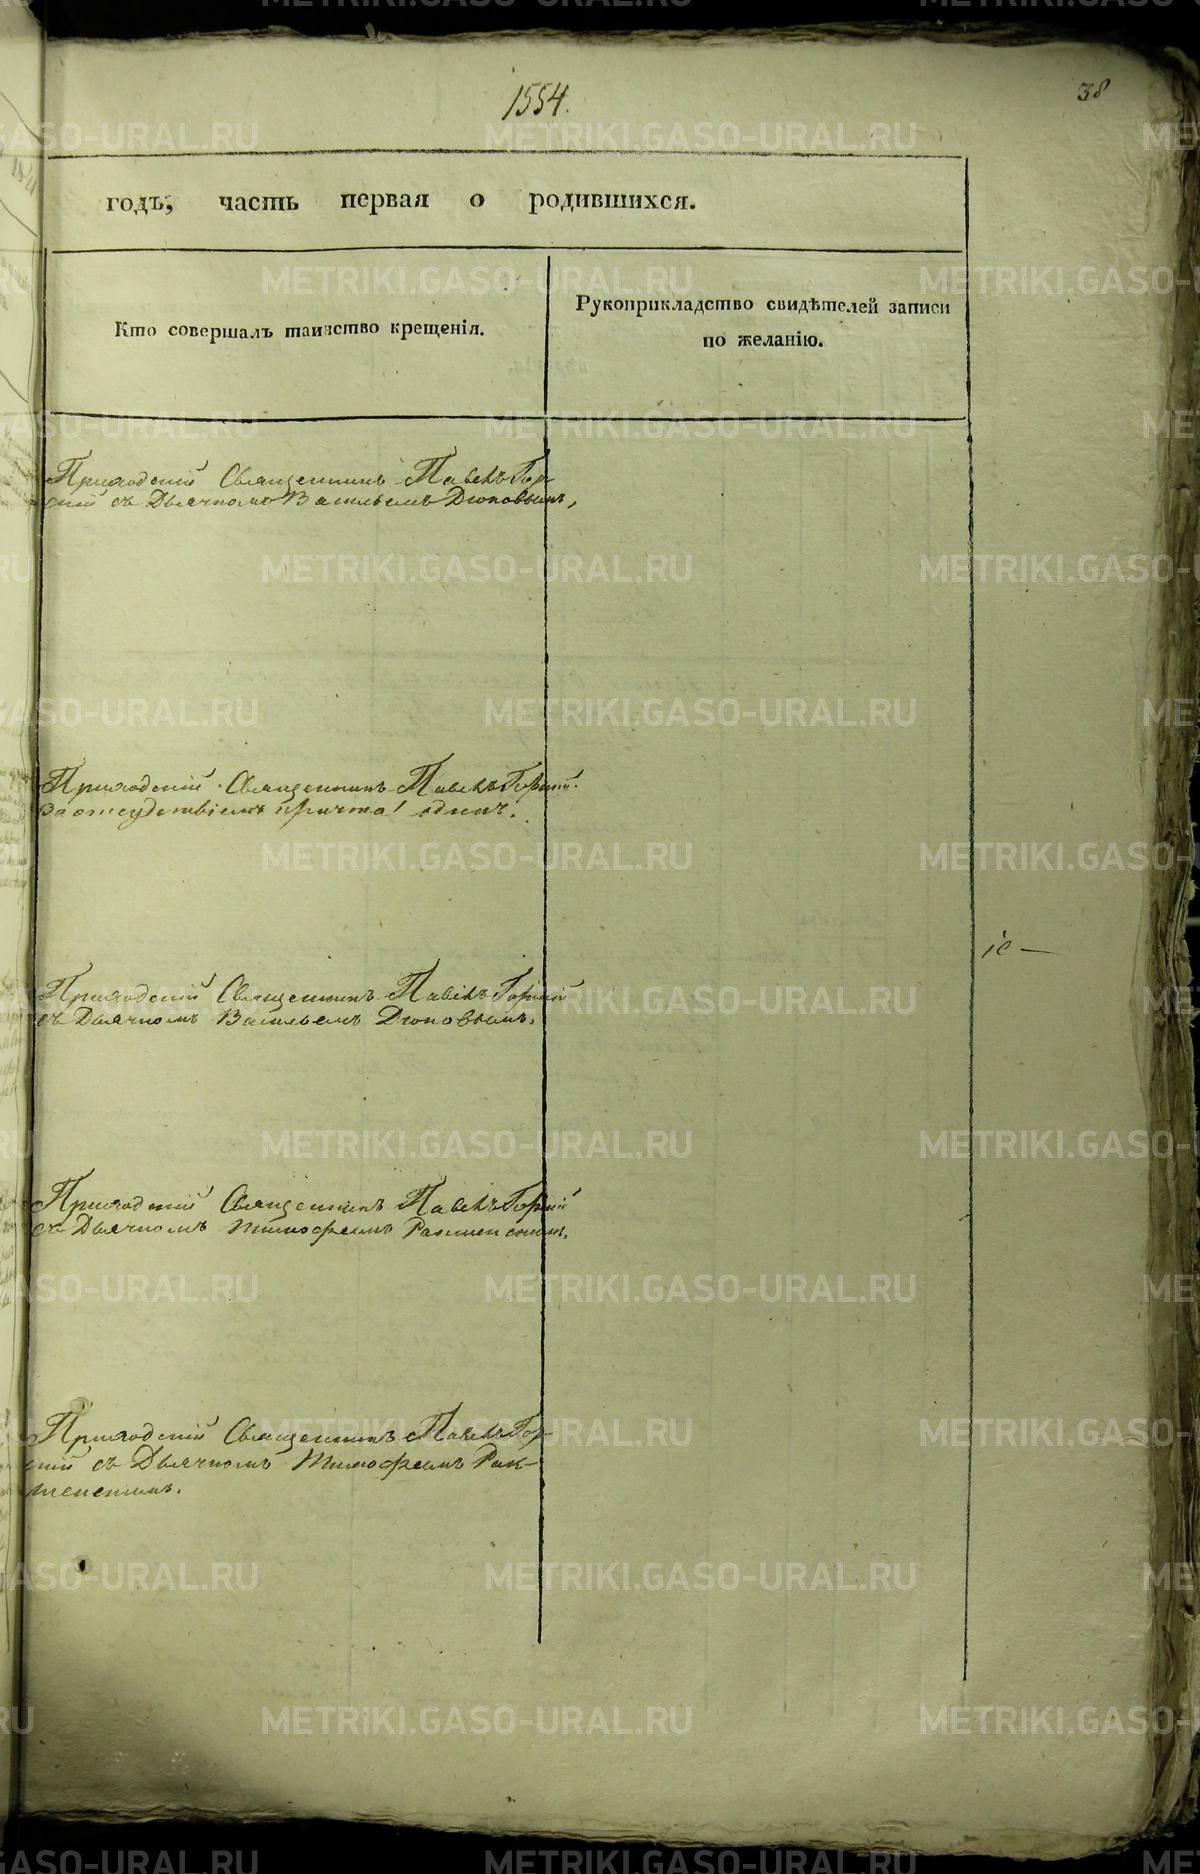 1554.
38
годъ, часть первая о родившихся.
Кто совершалъ таинство крещенія.
Рукоприкладство свидѣтелей записи
по желанію.
Приходскій Священникъ Павелъ Гор-
скій съ Дьячкомъ Васильемъ Дюковымъ,
Приходскій Священникъ Павелъ Горскій
за отсудствіемъ причта одинъ.
Приходскій Священникъ Павелъ Горскій
съ Дьячкомъ Васильемъ Дюковымъ.
Приходскій Священникъ Павелъ Горскій
съ Дьячкомъ Тимофеемъ
Приходскій Священникъ Павелъ Гор-
скій съ Дьячкомъ Тимофеемъ
METRIKI.GASO-URAL.RU